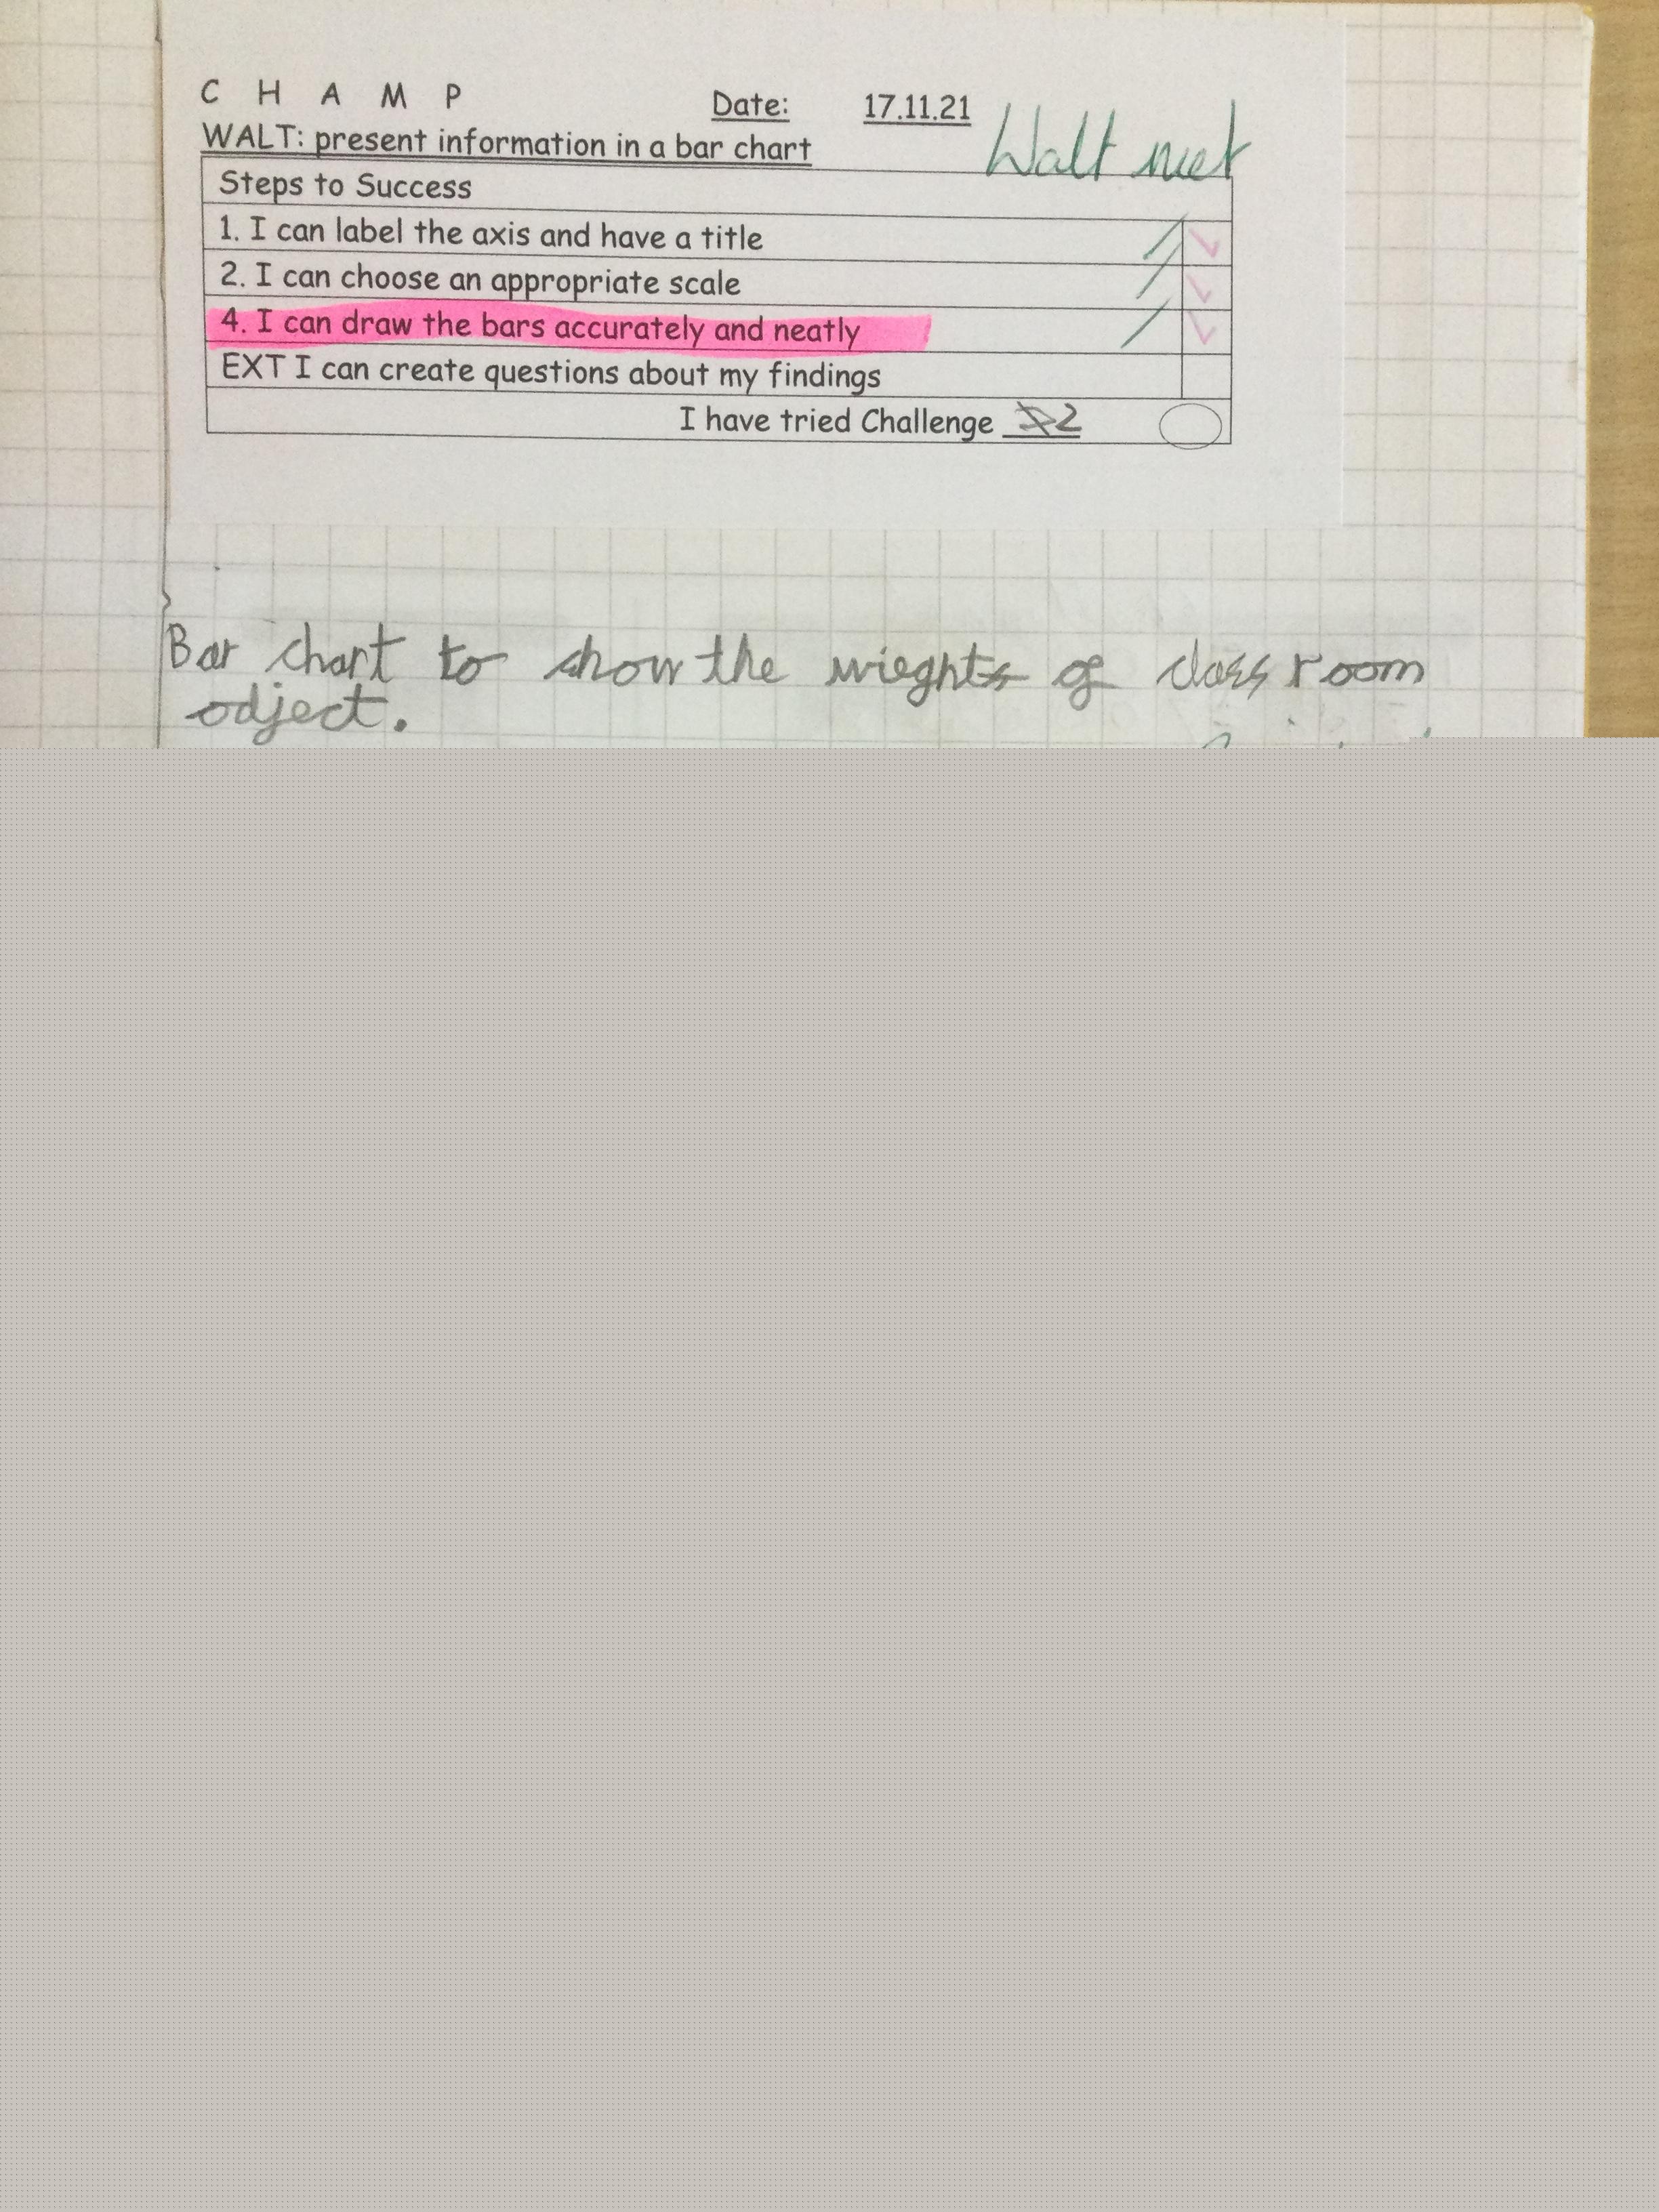 C H A M P
Date: 17.11.21
WALT: present information in a bar chart
Walt met
Steps to Success
1. I can label the axis and have a title
2. I can choose an appropriate scale
4. I can draw the bars accurately and neatly
EXT I can create questions about my findings
I have tried Challenge 2
Bar chart to show the wieghts of classroom
odject.